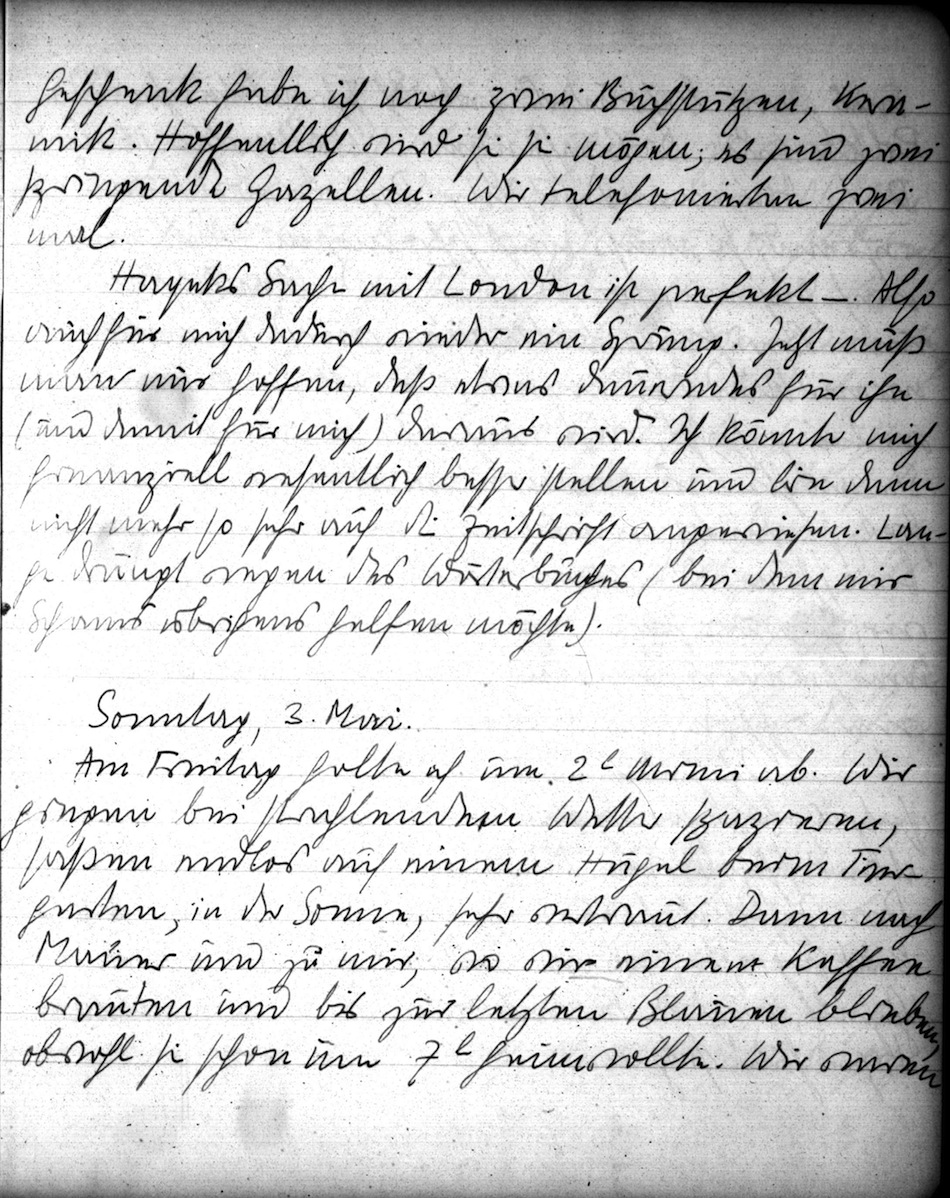 Geschenk habe ich noch zwei Buchstützen, Kera-
mik. Hoffentlich wird sie sie mögen; es sind zwei
springende Gazellen. Wir telefonierten zwei
mal.
Hayeks Sache mit London ist perfekt –. Also
auch für mich dadurch wieder ein Sprung. Jetzt muß
man nur hoffen, daß etwas dauerndes für ihn
(und damit für mich) daraus wird. Ich könnte mich
finanziell wesentlich besser stellen und bin dann
nicht mehr so sehr auf die Zeitschrift angewiesen. Lan-
ge drängt wegen des Wörterbuches (bei dem mir
Schams übrigens helfen möchte).
Sonntag, 3. Mai.
Am Freitag holte ich um 2h ab. Wir
gingen bei strahlendem Wetter spazieren,
saßen endlos auf einem Hügel beim Tier-
garten, in der Sonne, sehr vertraut. Dann nach
Mauer und zu mir, wo wir einen Kaffee
brauten und bis zur letzten Blauen blieben,
obwohl sie schon um 7h heimwollte. Wir waren